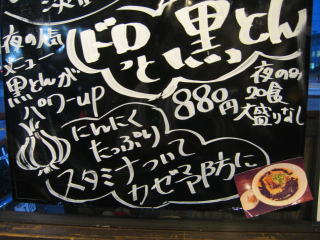 ドロっと黒とん
夜の人気
メニュー
黒とんが
パワーup
880円
夜のみ
20食
大盛りなし
にんにく
たっぷり
スタミナついて
カゼ予防に